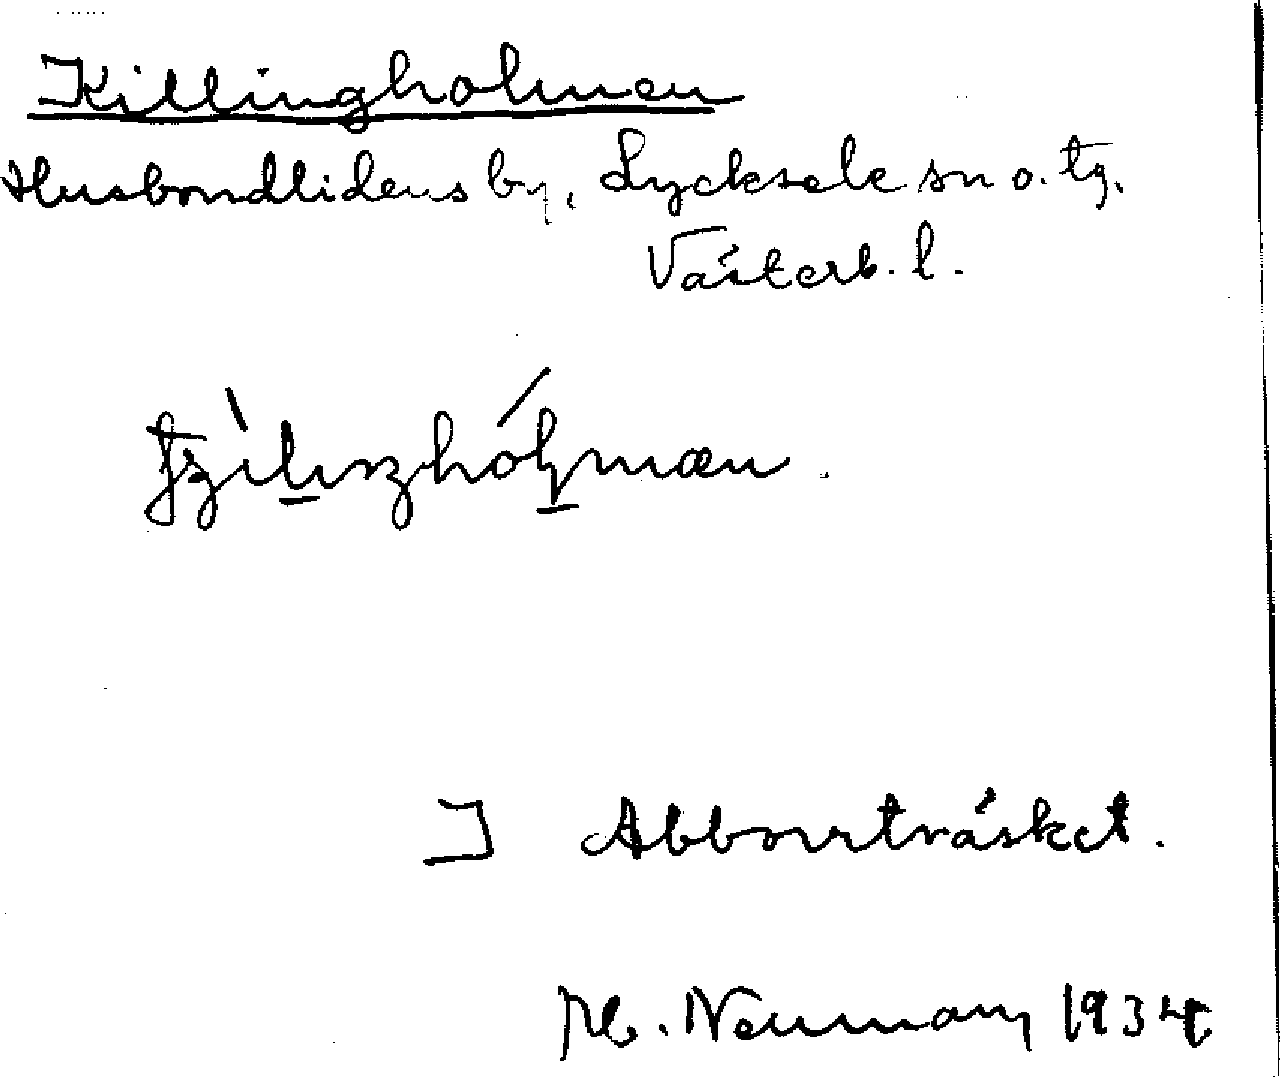 Killingholmen
Husbondlidens by, Lycksele sn o. tg.
Västerb. l.
I Abborrträsket.
Neuman 1934